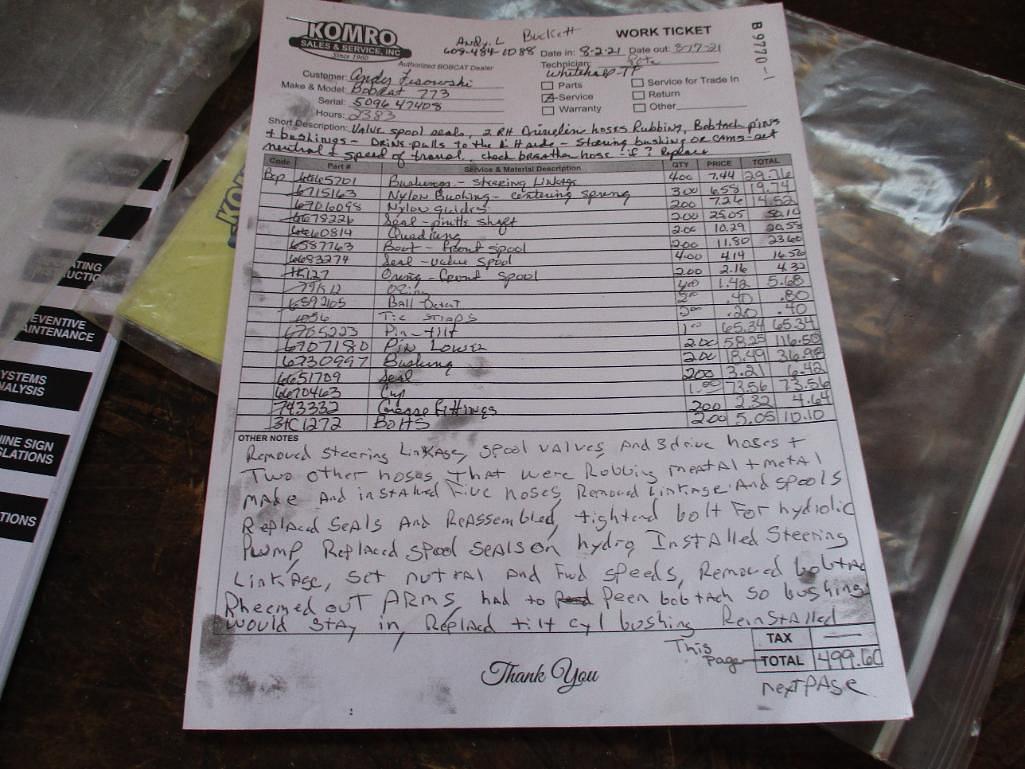 KOMRO
SALES & SERVICE, INC
Since 1960
Authorized BOBCAT Dealer
Andy. L Buckett
608-484-1088
WORK TICKET
Date in: 8-2-21 Date out: 8-17-21
Technician: Pete
B9770-1
Customer: Andy Lisowski
Make & Model: Bobcat 773
Serial: 5096 47408
Hours: 2383
Parts
Service
Warranty
Service for Trade In
Return
Other
Short Description: Valve spool seals, 2 RH Driveline hoses Rubbing, Bobtach pins
+ bushings - Drive pulls to the side - Steering bushing or cams - set
neutral + speed of travel, check breather hose - if ? Replace
Code Part # Service & Material Description QTY PRICE TOTAL
Bop 6665701 Bushings - steering Linkage 400 7.44 29.76
6715163 Nylon Bushing - centering spring 300 6.58 19.74
6706098 Nylon guides 200 7.26 14.52
6678226 Seal - shaft 200 25.05 50.10
6660814 Quadring 200 10.29 20.58
6587763 Boot - Front spool 200 11.80 23.60
6683274 Seal - valve Spool 400 4.14 16.56
15K127 Oring - Front Spool 200 2.16 4.32
79K12 O Ring 400 1.42 5.68
6592105 Ball Detent 200 .40 .80
1056 Tie straps 200 .20 .40
6705223 Pin - tilt 100 65.34 65.34
6707180 Pin Lower 200 58.25 116.50
6730997 Bushing 200 18.49 36.98
6651709 Seal 200 3.21 6.42
6670463 1.00 73.56 73.56
743332 Grease Fittings 200 2.32 4.64
31C1272 Bolts 200 5.05 10.10
OTHER NOTES
Removed steering Linkage, spool valves And 3 drive hoses +
Two other hoses That were Robbing meatal + metal
made And installed Five hoses, Removed Linkage And spools
Replaced seals And ReAssembled, tightend bolt For hydrolic
Pump, Replaced spool seals on hydro, Installed Steering
Linkage, set nutral And Fwd speeds, Removed bobtac
Rheemed out Arms, had to Peen bobtach so bushing
would stay in, Replaced tilt cyl bushing Reinstalled
This page
TAX —
TOTAL 499.60
Thank You
next page
ATING
TRUCTIO
EVENTIVE
AINTENANCE
YSTEMS
NALYSIS
INE SIGN
SLATIONS
TIONS